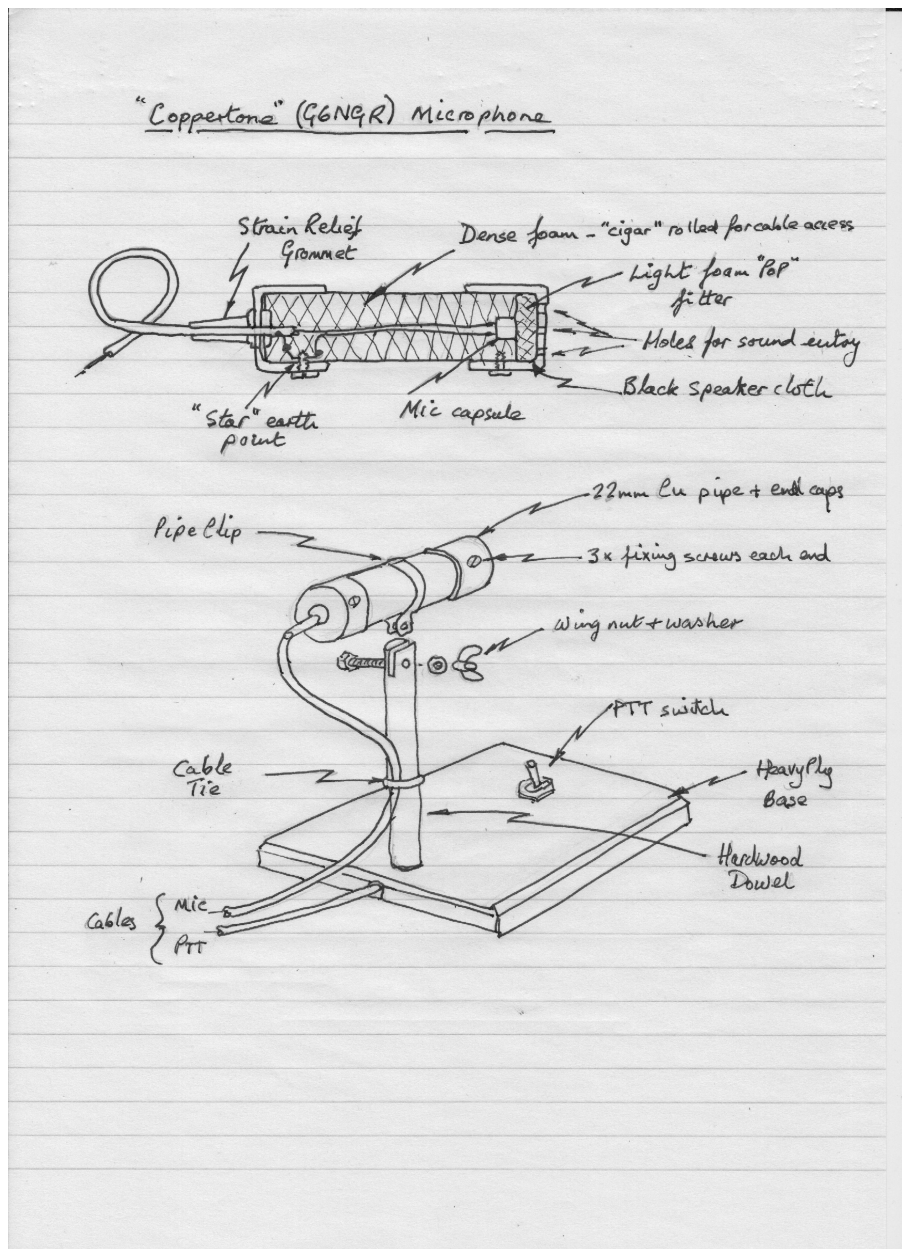 "Coppertone" (G6NGR) Microphone
Strain Relief
Grommet
Dense foam - "cigar" rolled for cable access
Light foam "Pop"
filter
Holes for sound entry
Black speaker cloth
Mic capsule
"Star" earth
point
22mm Cu pipe + end caps
Pipe Clip
3x fixing screws each end
Wing nut + washer
PTT switch
Cable
Tie
Heavy Ply
Base
Hardwood
Dowel
Cables { Mic
PTT